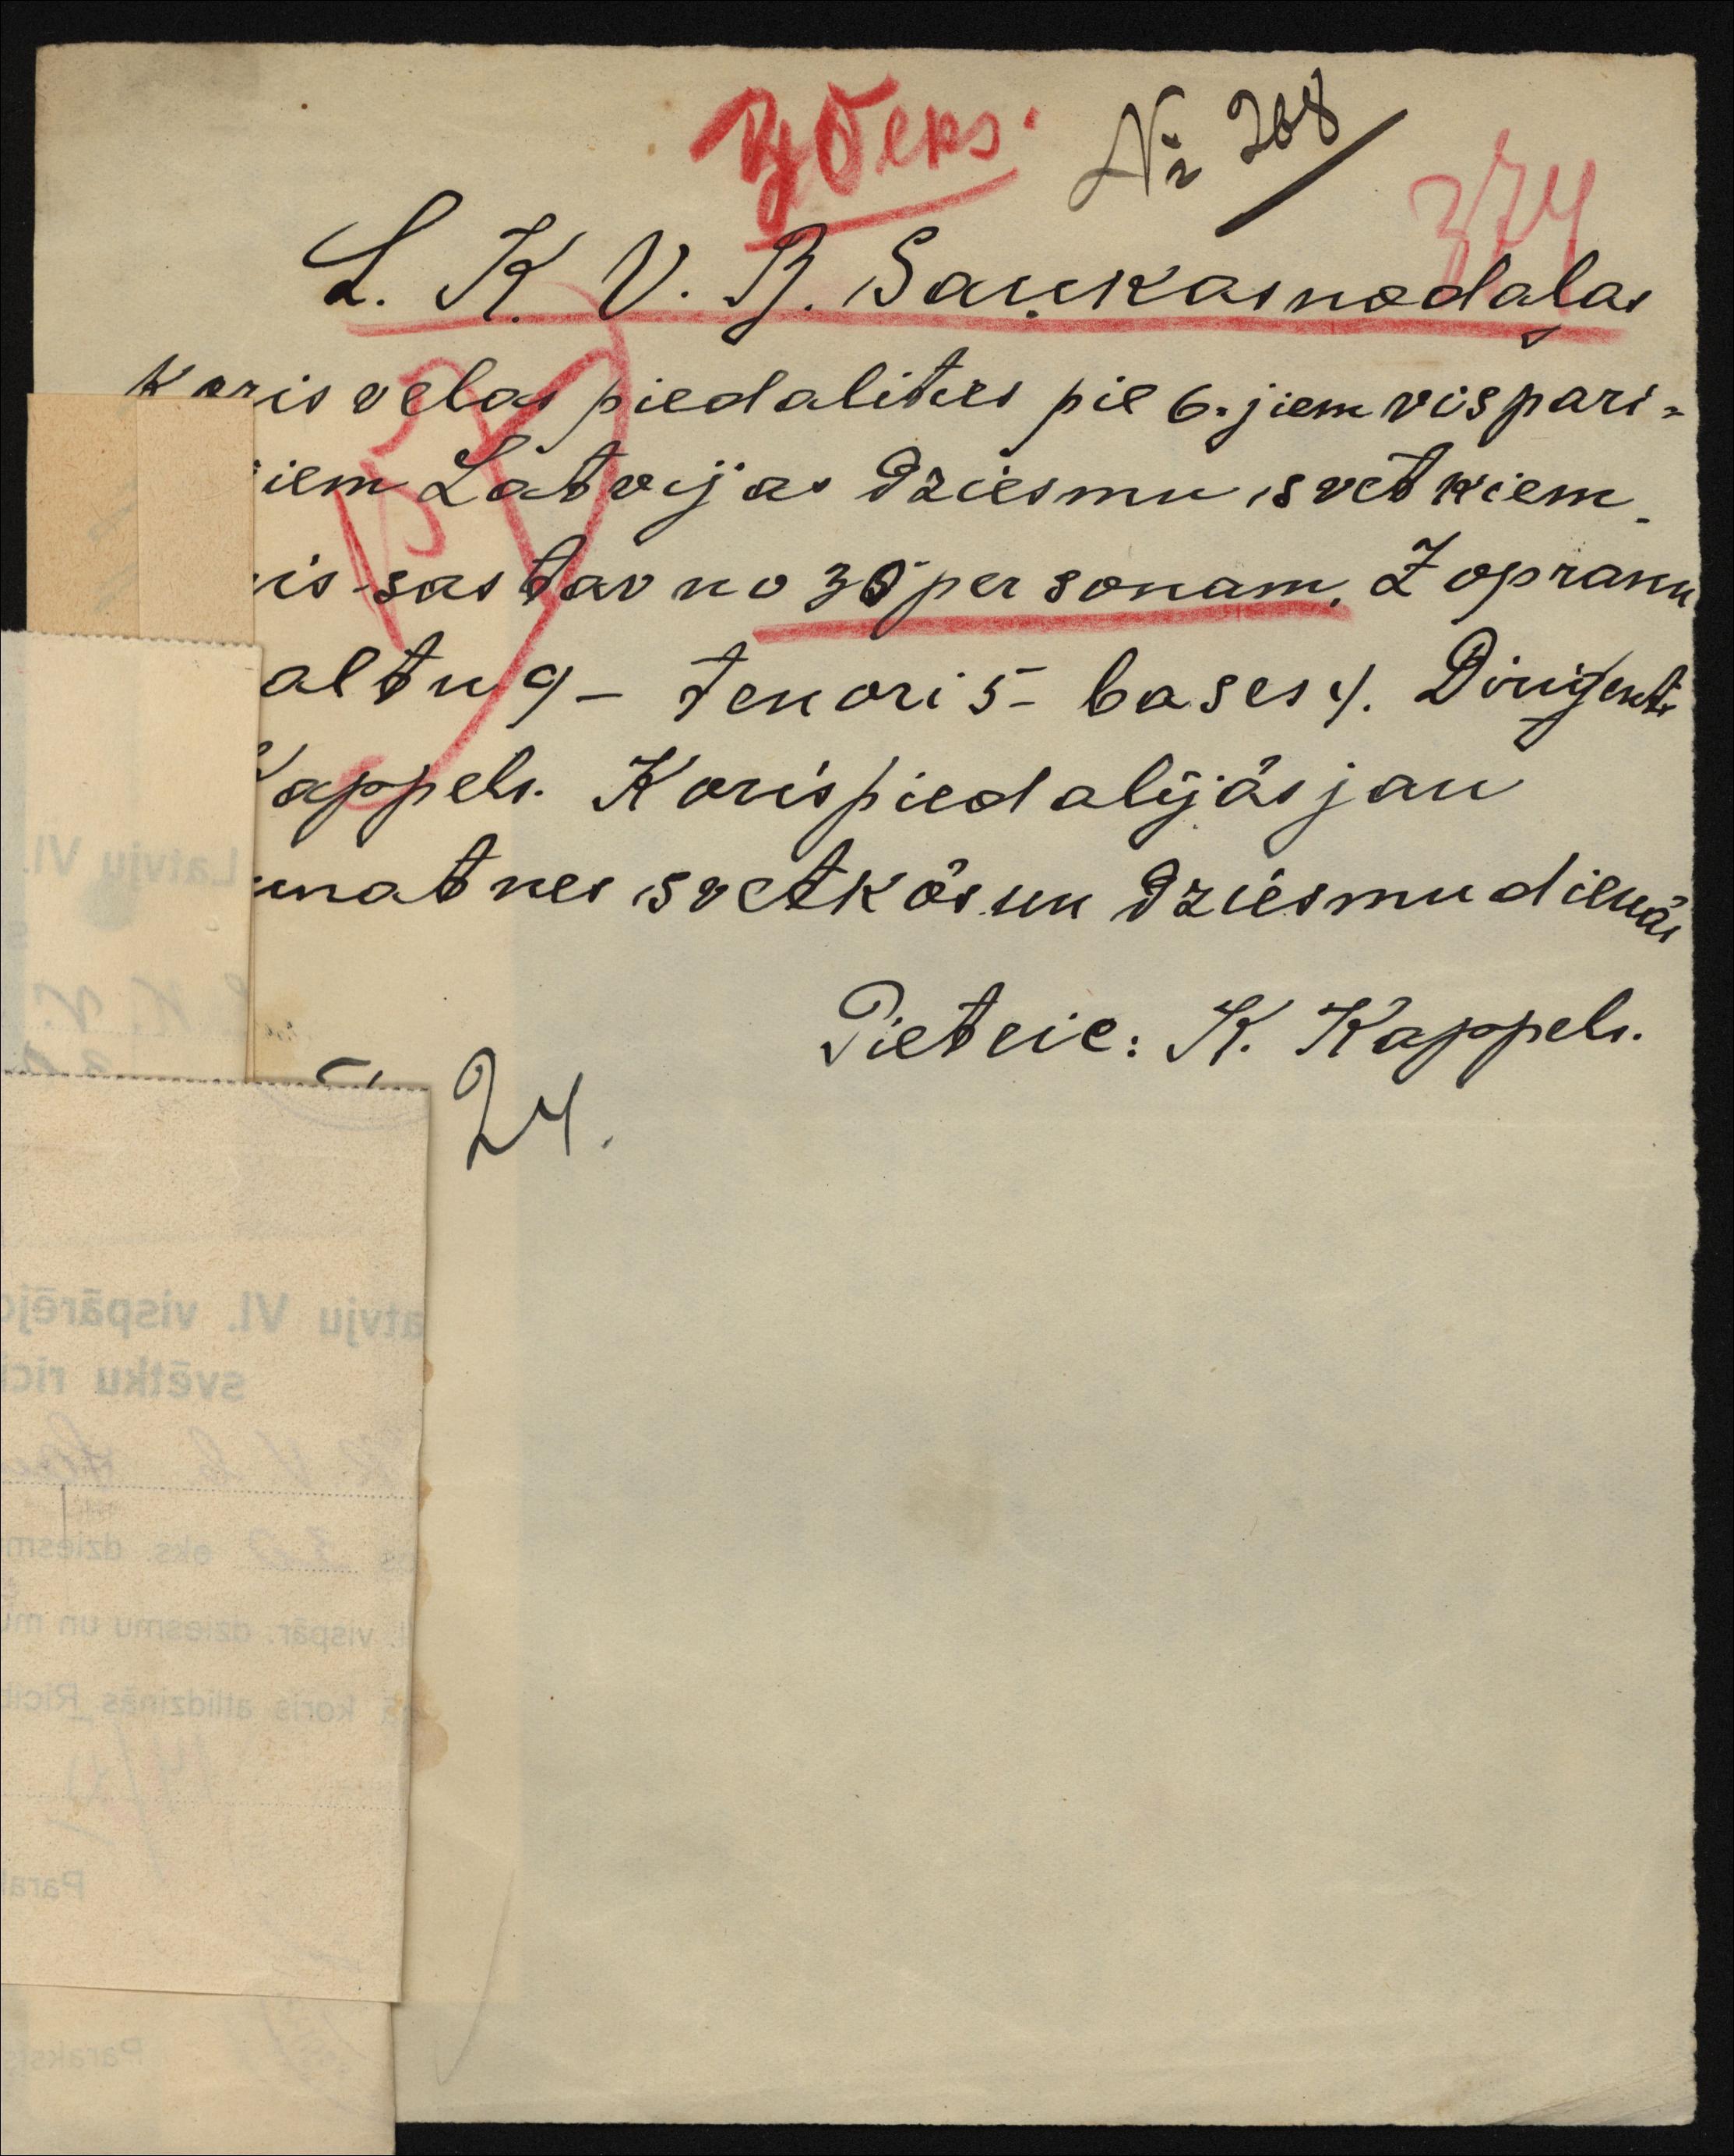 eks.
№ 268
374
L. K. V. B. Saukas nodaļas
Koris vēlas piedalities pie 6.jiem vispari=
iem Latvijas Dziesmu svētkiem.
is sastāv no 30 personam. Zopranu
altu 9 – Tenori 5 – bases 4. Diriģents
Kappels. Koris piedalījās jau
unatnes svetkōs un Dziesmu dienās
Pieteic: K. Kappels.
24.
Latvju VI.
L. K. V.
atvju VI. vispārējo
svētku rīc
K. V. B.
eks. dziesm
vispār. dziesmu un mū
koris atlīdzinās Rīcīb
Para
Paraksts